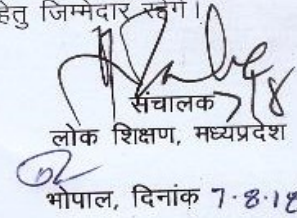 हेतु जिम्मेदार रहेंगे।
संचालक
लोक शिक्षण, मध्यप्रदेश
भोपाल, दिनांक 7.8.18